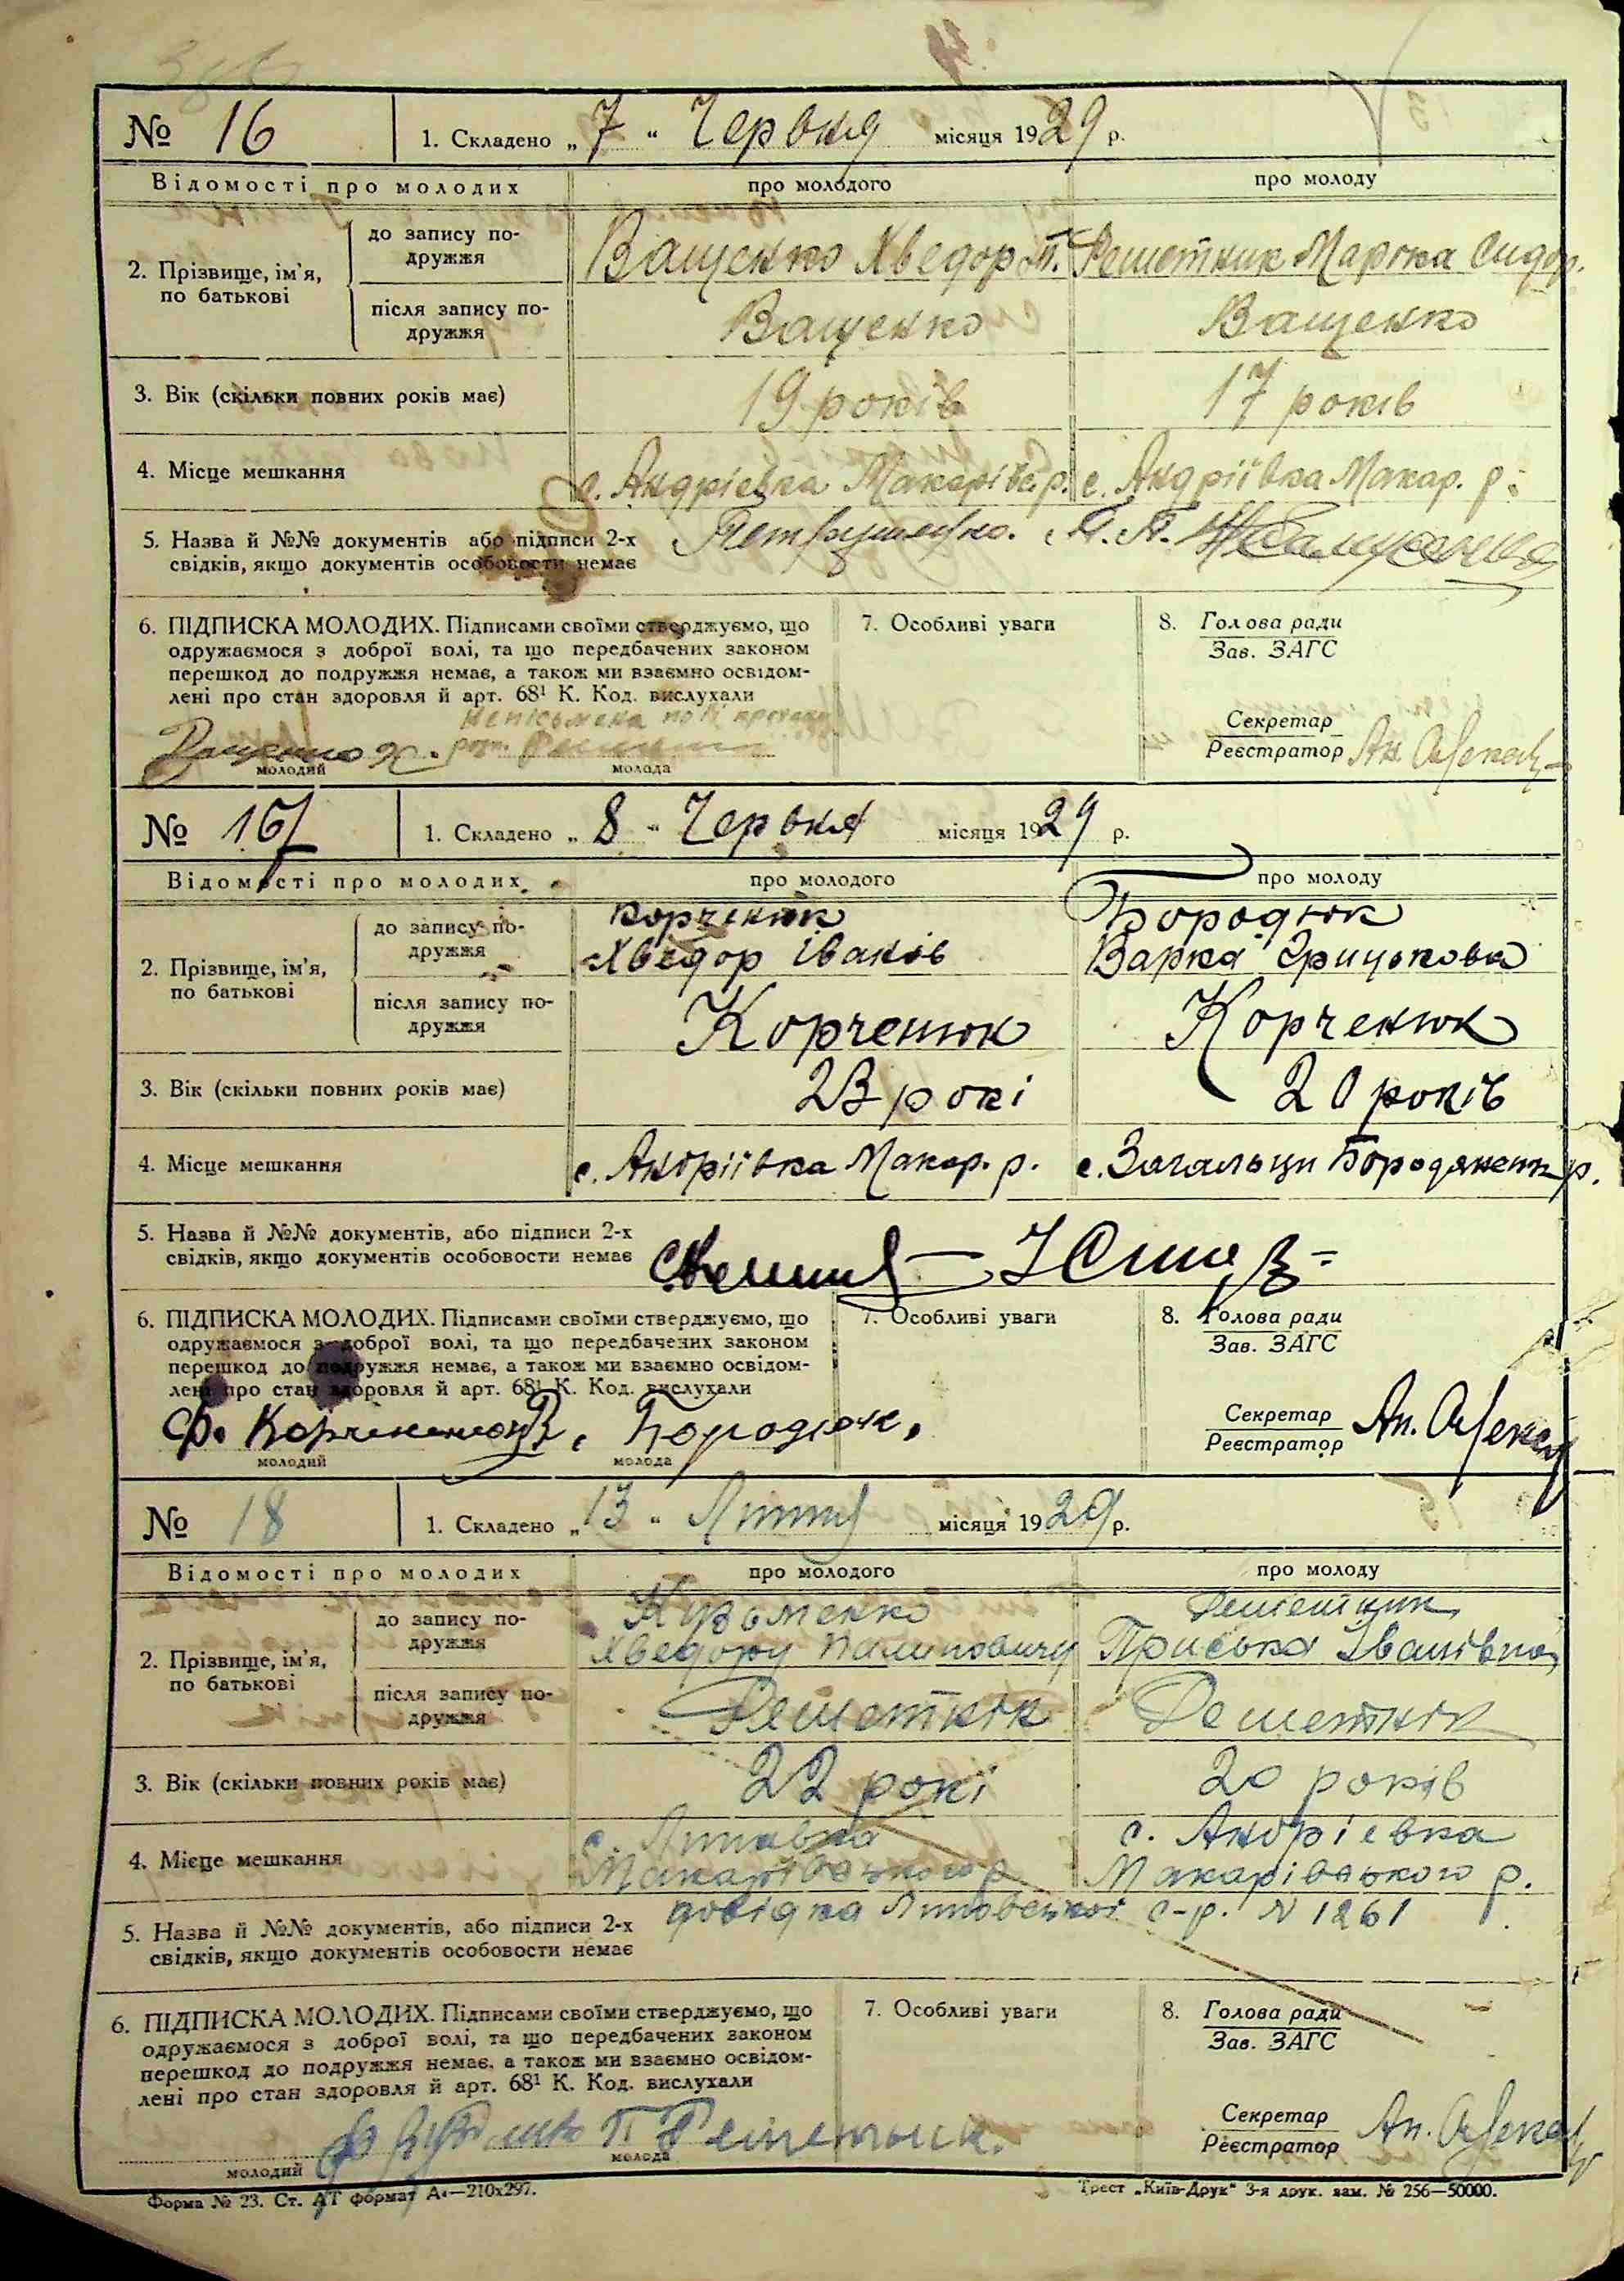 № 16 1. Складено „7“ Червня місяця 1929 р.
Відомості про молодих про молодого про молоду
2. Прізвище, ім'я, по батькові
до запису подружжя Ващенко Хведор П. Решетник Марка Сидор.
після запису подружжя Ващенко Ващенко
3. Вік (скільки повних років має) 19 років 17 років
4. Місце мешкання с. Андріевка Макарівс. р. с. Андріївка Макар. р.
5. Назва й №№ документів або підписи 2-х
свідків, якщо документів особовости немає
6. ПІДПИСКА МОЛОДИХ. Підписами своїми стверджуємо, що
одружаємося з доброї волі, та що передбачених законом
перешкод до подружжя немає, а також ми взаємно освідом-
лені про стан здоровля й арт. 68¹ К. Код. вислухали
7. Особливі уваги
8. Голова ради
Зав. ЗАГС
Секретар
Реєстратор
Ващенко Х.
молодий молода
№ 17 1. Складено „8“ Червня місяця 1929 р.
Відомості про молодих про молодого про молоду
2. Прізвище, ім'я, по батькові
до запису подружжя
Корченюк Бородюк
Хведор Іванів Варка Грицькова
після запису подружжя Корченюк Корченюк
3. Вік (скільки повних років має) 23 рокі 20 років
4. Місце мешкання с. Андріївка Макар. р. с. Загальци Бородянськ р.
5. Назва й №№ документів, або підписи 2-х
свідків, якщо документів особовости немає
6. ПІДПИСКА МОЛОДИХ. Підписами своїми стверджуємо, що
одружаємося з доброї волі, та що передбачених законом
перешкод до подружжя немає, а також ми взаємно освідом-
лені про стан здоровля й арт. 68¹ К. Код. вислухали
7. Особливі уваги
8. Голова ради
Зав. ЗАГС
Секретар
Реєстратор
Ф. Бородюк.
молодий молода
№ 18 1. Складено „13“ Липня місяця 1929 р.
Відомості про молодих про молодого про молоду
2. Прізвище, ім'я, по батькові
до запису подружжя
Кузьменко Решетник
Хведору Пилиповичу Приська Іванівна
після запису подружжя Решетнік Решетнік
3. Вік (скільки повних років має) 22 рокі 20 років
4. Місце мешкання
с. Липовка с. Андріевка
Макарівського р. Макарівського р.
довідка Липовецької с-р. N 1261
5. Назва й №№ документів, або підписи 2-х
свідків, якщо документів особовости немає
6. ПІДПИСКА МОЛОДИХ. Підписами своїми стверджуємо, що
одружаємося з доброї волі, та що передбачених законом
перешкод до подружжя немає, а також ми взаємно освідом-
лені про стан здоровля й арт. 68¹ К. Код. вислухали
7. Особливі уваги
8. Голова ради
Зав. ЗАГС
Секретар
Реєстратор
П Решетник.
молодий молода
Форма № 23. Ст. АТ формат А₄—210х297.
Трест „Київ-Друк“ 3-я друк. зам. № 256—50000.